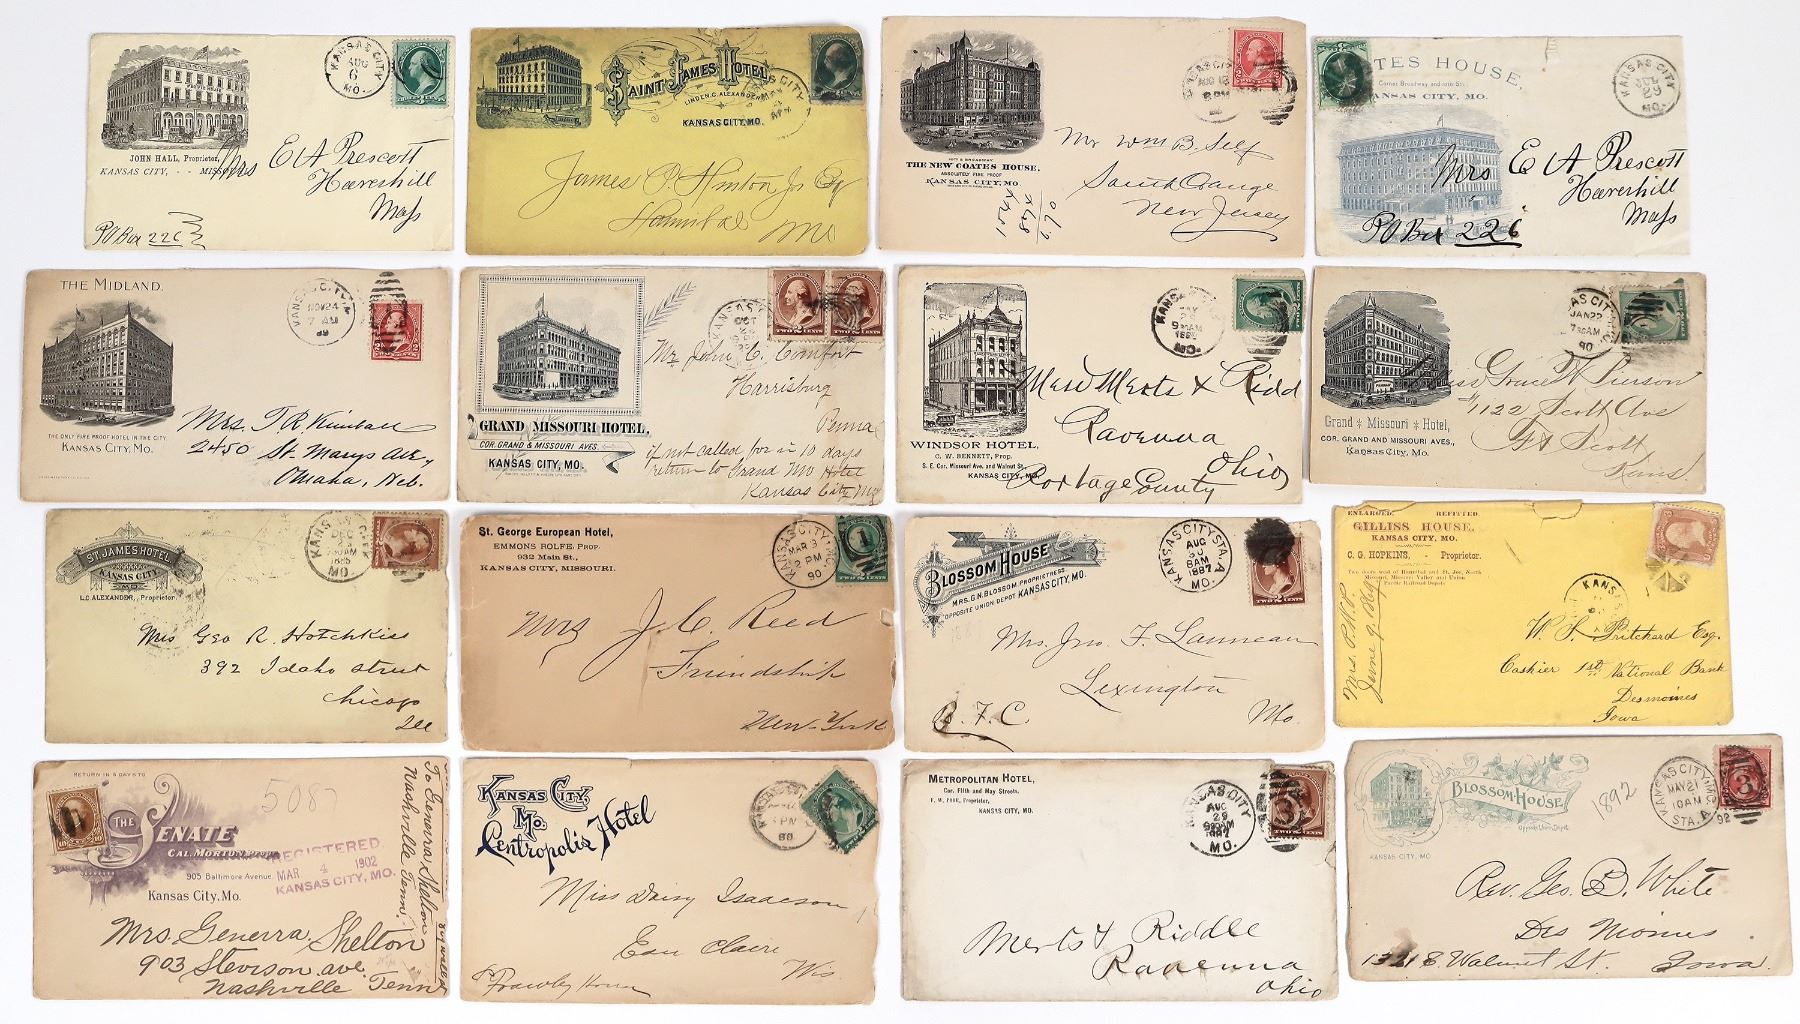 JOHN HALL, Proprietor,
KANSAS CITY, - - MISSOURI
KANSAS CITY
AUG
6
MO.
Mrs E A Prescott
Haverhill
Mass
PO Box 226
SAINT JAMES HOTEL,
LINDEN. C. ALEXANDER
KANSAS CITY, MO.
James P. Hinton Jr Esq
Hannibal
Mo
10TH & BROADWAY
THE NEW COATES HOUSE,
ABSOLUTELY FIRE PROOF
KANSAS CITY, MO.
Mr Wm B. Self
South Orange
New Jersey
ATES HOUSE,
Corner Broadway and 10th St.
KANSAS CITY, MO.
KANSAS CITY
JUL
29
MO.
Mrs E A Prescott
Haverhill
Mass
PO Box 226
THE MIDLAND.
THE ONLY FIRE PROOF HOTEL IN THE CITY.
KANSAS CITY, MO.
KANSAS CITY
NOV 24
7 AM
89
Mrs. T. R. Kimball
2450 St. Marys Ave,
Omaha, Neb.
GRAND MISSOURI HOTEL,
COR. GRAND & MISSOURI AVES.
KANSAS CITY, MO.
TWO 2 CENTS
TWO 2 CENTS
Mr. John C. Comfort
Harrisburg
Penna
if not called for in 10 days
return to Grand Mo Hotel
Kansas City Mo
WINDSOR HOTEL,
C. W. BENNETT, Prop.
S. E. Cor. Missouri Ave. and Walnut St.,
KANSAS CITY, MO.
Ravenna
Ohio
Portage County
Grand * Missouri * Hotel,
COR. GRAND AND MISSOURI AVES.,
Kansas City, Mo.
JAN 22
730AM
90
Miss Grace N. Pierson
#1122 Scott Ave
Ft Scott
Kans
ST. JAMES HOTEL
KANSAS CITY
MO.
L.C. ALEXANDER, Proprietor.
KANSAS CITY
DEC
730AM
1885
MO.
Mrs Geo R. Hotchkiss
392 Idaho street
Chicago
Ill
St. George European Hotel,
EMMONS ROLFE, PROP.
932 Main St.,
KANSAS CITY, MISSOURI.
KANSAS CITY, MO.
MAR 3
2 PM
90
Mrs J. C. Reed
Friendship
New-York
BLOSSOM HOUSE
MRS. G.N. BLOSSOM, PROPRIETRESS
OPPOSITE UNION DEPOT KANSAS CITY, MO.
KANSAS CITY, STA. A
AUG
30
8AM
1887
MO.
Mrs. Jno. F. Launeau
Lexington
B. F. C. Mo.
ENLARGED. REFITTED.
GILLISS HOUSE,
KANSAS CITY, MO.
C. G. HOPKINS, - Proprietor.
Two doors west of Hannibal and St. Joe, North
Missouri, Missouri Valley and Union
Pacific Railroad Depots.
W. S. Pritchard Esq.
Cashier 1st National Bank
Desmoines
Iowa
RETURN IN 5 DAYS TO
THE SENATE
CAL. MORTON, PROP.
905 Baltimore Avenue
Kansas City, Mo.
5087
REGISTERED
MAR 4 1902
KANSAS CITY, MO.
Mrs. Generra Shelton
903 Stevison ave.
Nashville Tenn
To Generra Shelton
Nashville Tenn.
KANSAS CITY,
MO.
Centropolis Hotel
Miss Daisy Isaacson
Eau Claire
Wis.
METROPOLITAN HOTEL,
Cor. Fifth and May Streets,
KANSAS CITY, MO.
KANSAS CITY
AUG
29
930AM
1887
MO.
Merts & Riddle
Ravenna
Ohio
BLOSSOM-HOUSE
Opposite Union Depot
KANSAS CITY, MO
1892
KANSAS CITY, MO.
MAY 21
10AM
92
STA. A
Rev. Geo. B. White
Des Moines
1321 E. Walnut St. Iowa.